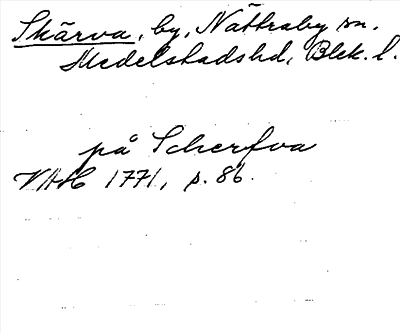 Skärva, by, Nättraby sn.
Medelstadshd, Blek. l.
på Scherfva
VAH 1771, p. 86.